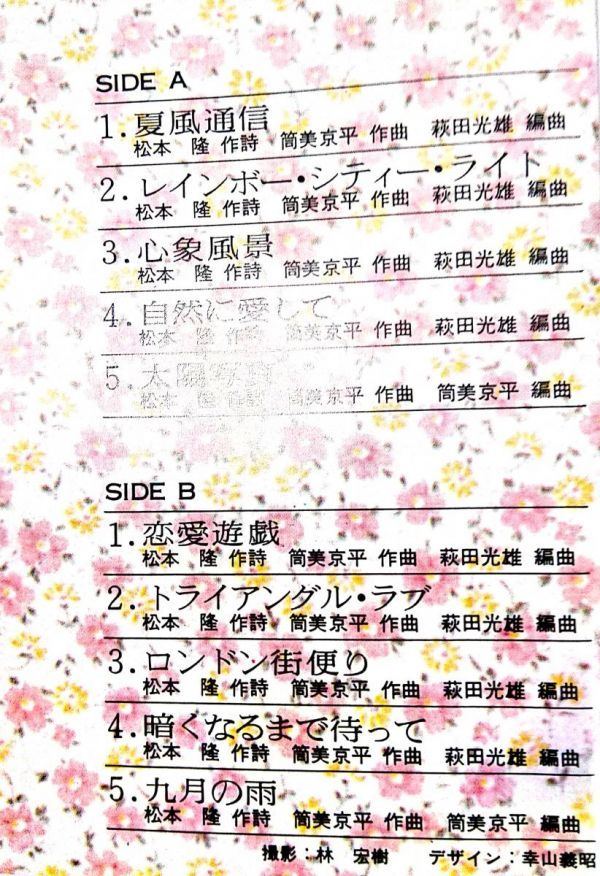 SIDE A
1.夏風通信
松本 隆 作詩 筒美京平 作曲 萩田光雄 編曲
2.レインボー・シティー・ライト
松本 隆 作詩 筒美京平 作曲 萩田光雄 編曲
3.心象風景
松本 隆 作詩 筒美京平 作曲 萩田光雄 編曲
4.自然に愛して
松本 隆 作詩 筒美京平 作曲 萩田光雄 編曲
5.太陽写真
松本 隆 作詩 筒美京平 作曲 筒美京平 編曲
SIDE B
1.恋愛遊戯
松本 隆 作詩 筒美京平 作曲 萩田光雄 編曲
2.トライアングル・ラブ
松本 隆 作詩 筒美京平 作曲 萩田光雄 編曲
3.ロンドン街便り
松本 隆 作詩 筒美京平 作曲 萩田光雄 編曲
4.暗くなるまで待って
松本 隆 作詩 筒美京平 作曲 萩田光雄 編曲
5.九月の雨
松本 隆 作詩 筒美京平 作曲 筒美京平 編曲
撮影:林 宏樹 デザイン:幸山義昭